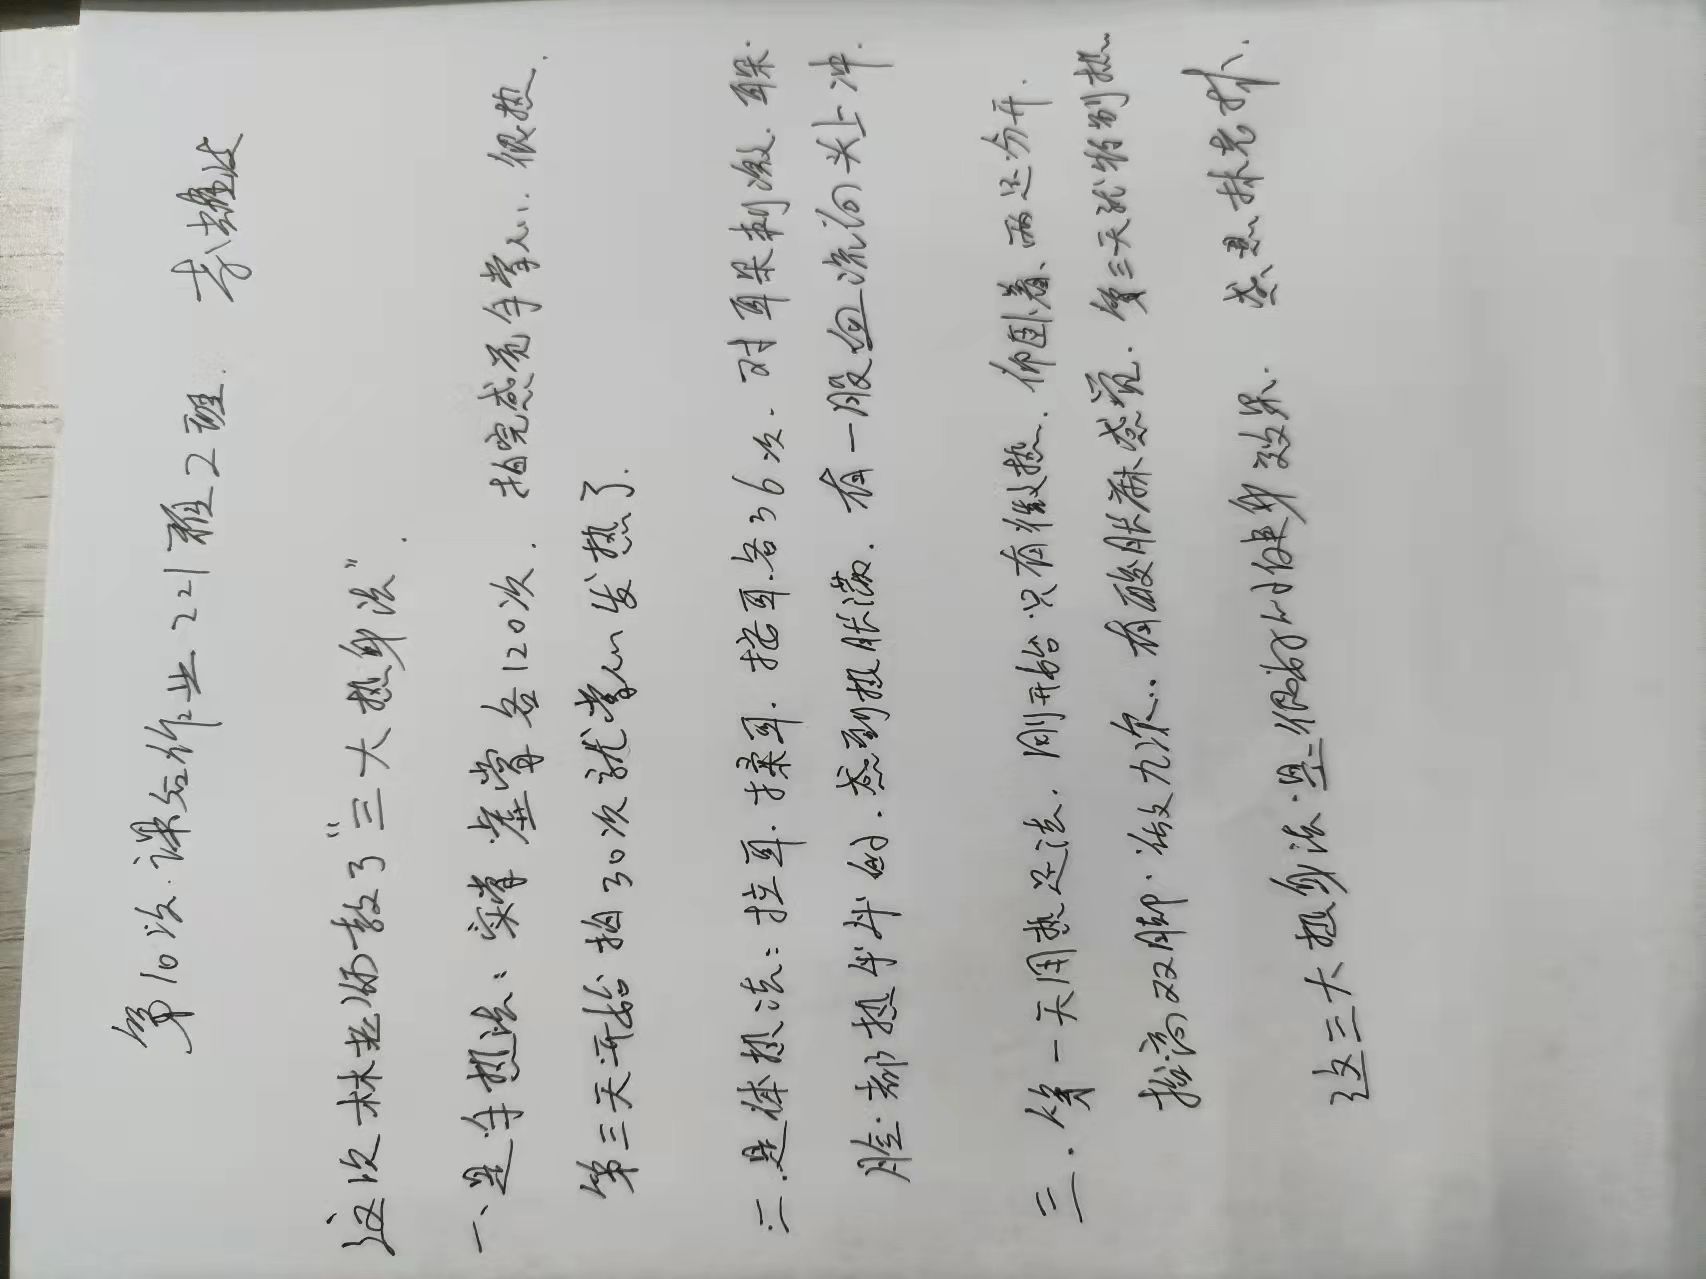 第10次.课后作业221雅2班. 李雄波
这次林老师教了"三大热身法".
一、是手热法:实掌 虚掌各120次. 拍完感觉手掌心.很热.
第三天开始拍30次就掌心发热了.
二.是体热法:拉耳.揉耳.搓耳.各36次.对耳朵刺激.耳朵.
脸.都热乎乎的.感到投胀满.有一股血流向头上冲.
三.第一天用热还法.刚开始只有微热.仰卧着、两还分开
抬高双脚.做九次..有酸胀麻感觉.第三天就特别热
这三大热身法.是很好的健身效果. 感恩林老师.